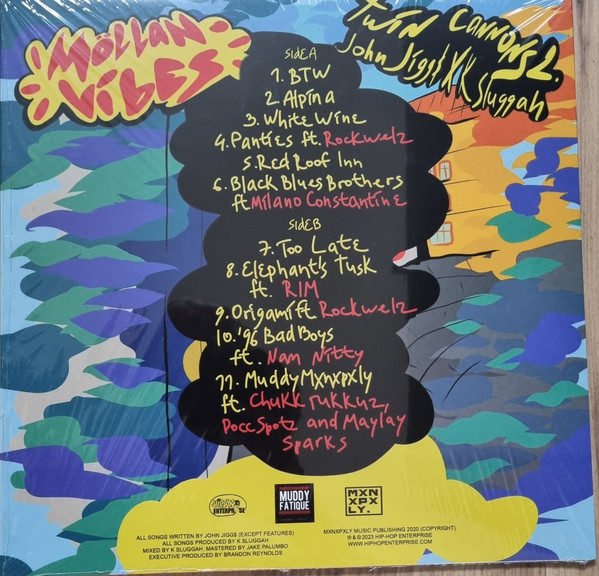 MÖLLAN
VIBES
TWIN CANNONS 2.
John Jiggs X K Sluggah
SidE A
1. BTW
2. Alpina
3. White Wine
4. Panties ft. Rockwelz
5. Red Roof Inn
6. Black Blues Brothers
ft Milano Constantine
SidE B
7. Too Late
8. Elephant's Tusk
ft. RIM
9. Origami ft Rockwelz
10. '96 Bad Boys
ft. Nam Nitty
11. Muddy Mxnxpxly
ft. Chukk rukkuz,
Pocc Spotz and Maylay
Sparks
HipHop
ENTERPRISE
MUDDY
FATIQUE
MXN
XPX
LY.
ALL SONGS WRITTEN BY JOHN JIGGS (EXCEPT FEATURES)
ALL SONGS PRODUCED BY K SLUGGAH
MIXED BY K SLUGGAH. MASTERED BY JAKE PALUMBO
EXECUTIVE PRODUCED BY BRANDON REYNOLDS
MXNXPXLY MUSIC PUBLISHING 2020 (COPYRIGHT)
℗ & © 2023 HIP-HOP ENTERPRISE
WWW.HIPHOPENTERPRISE.COM